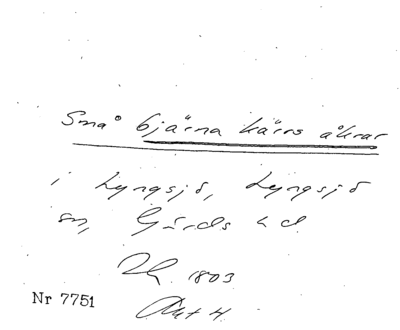 Små bjärna kärrs åkrar
i Lyngsjö, Lyngsjö
sn, Gärds hd
1803
Nr 7751
Akt 4